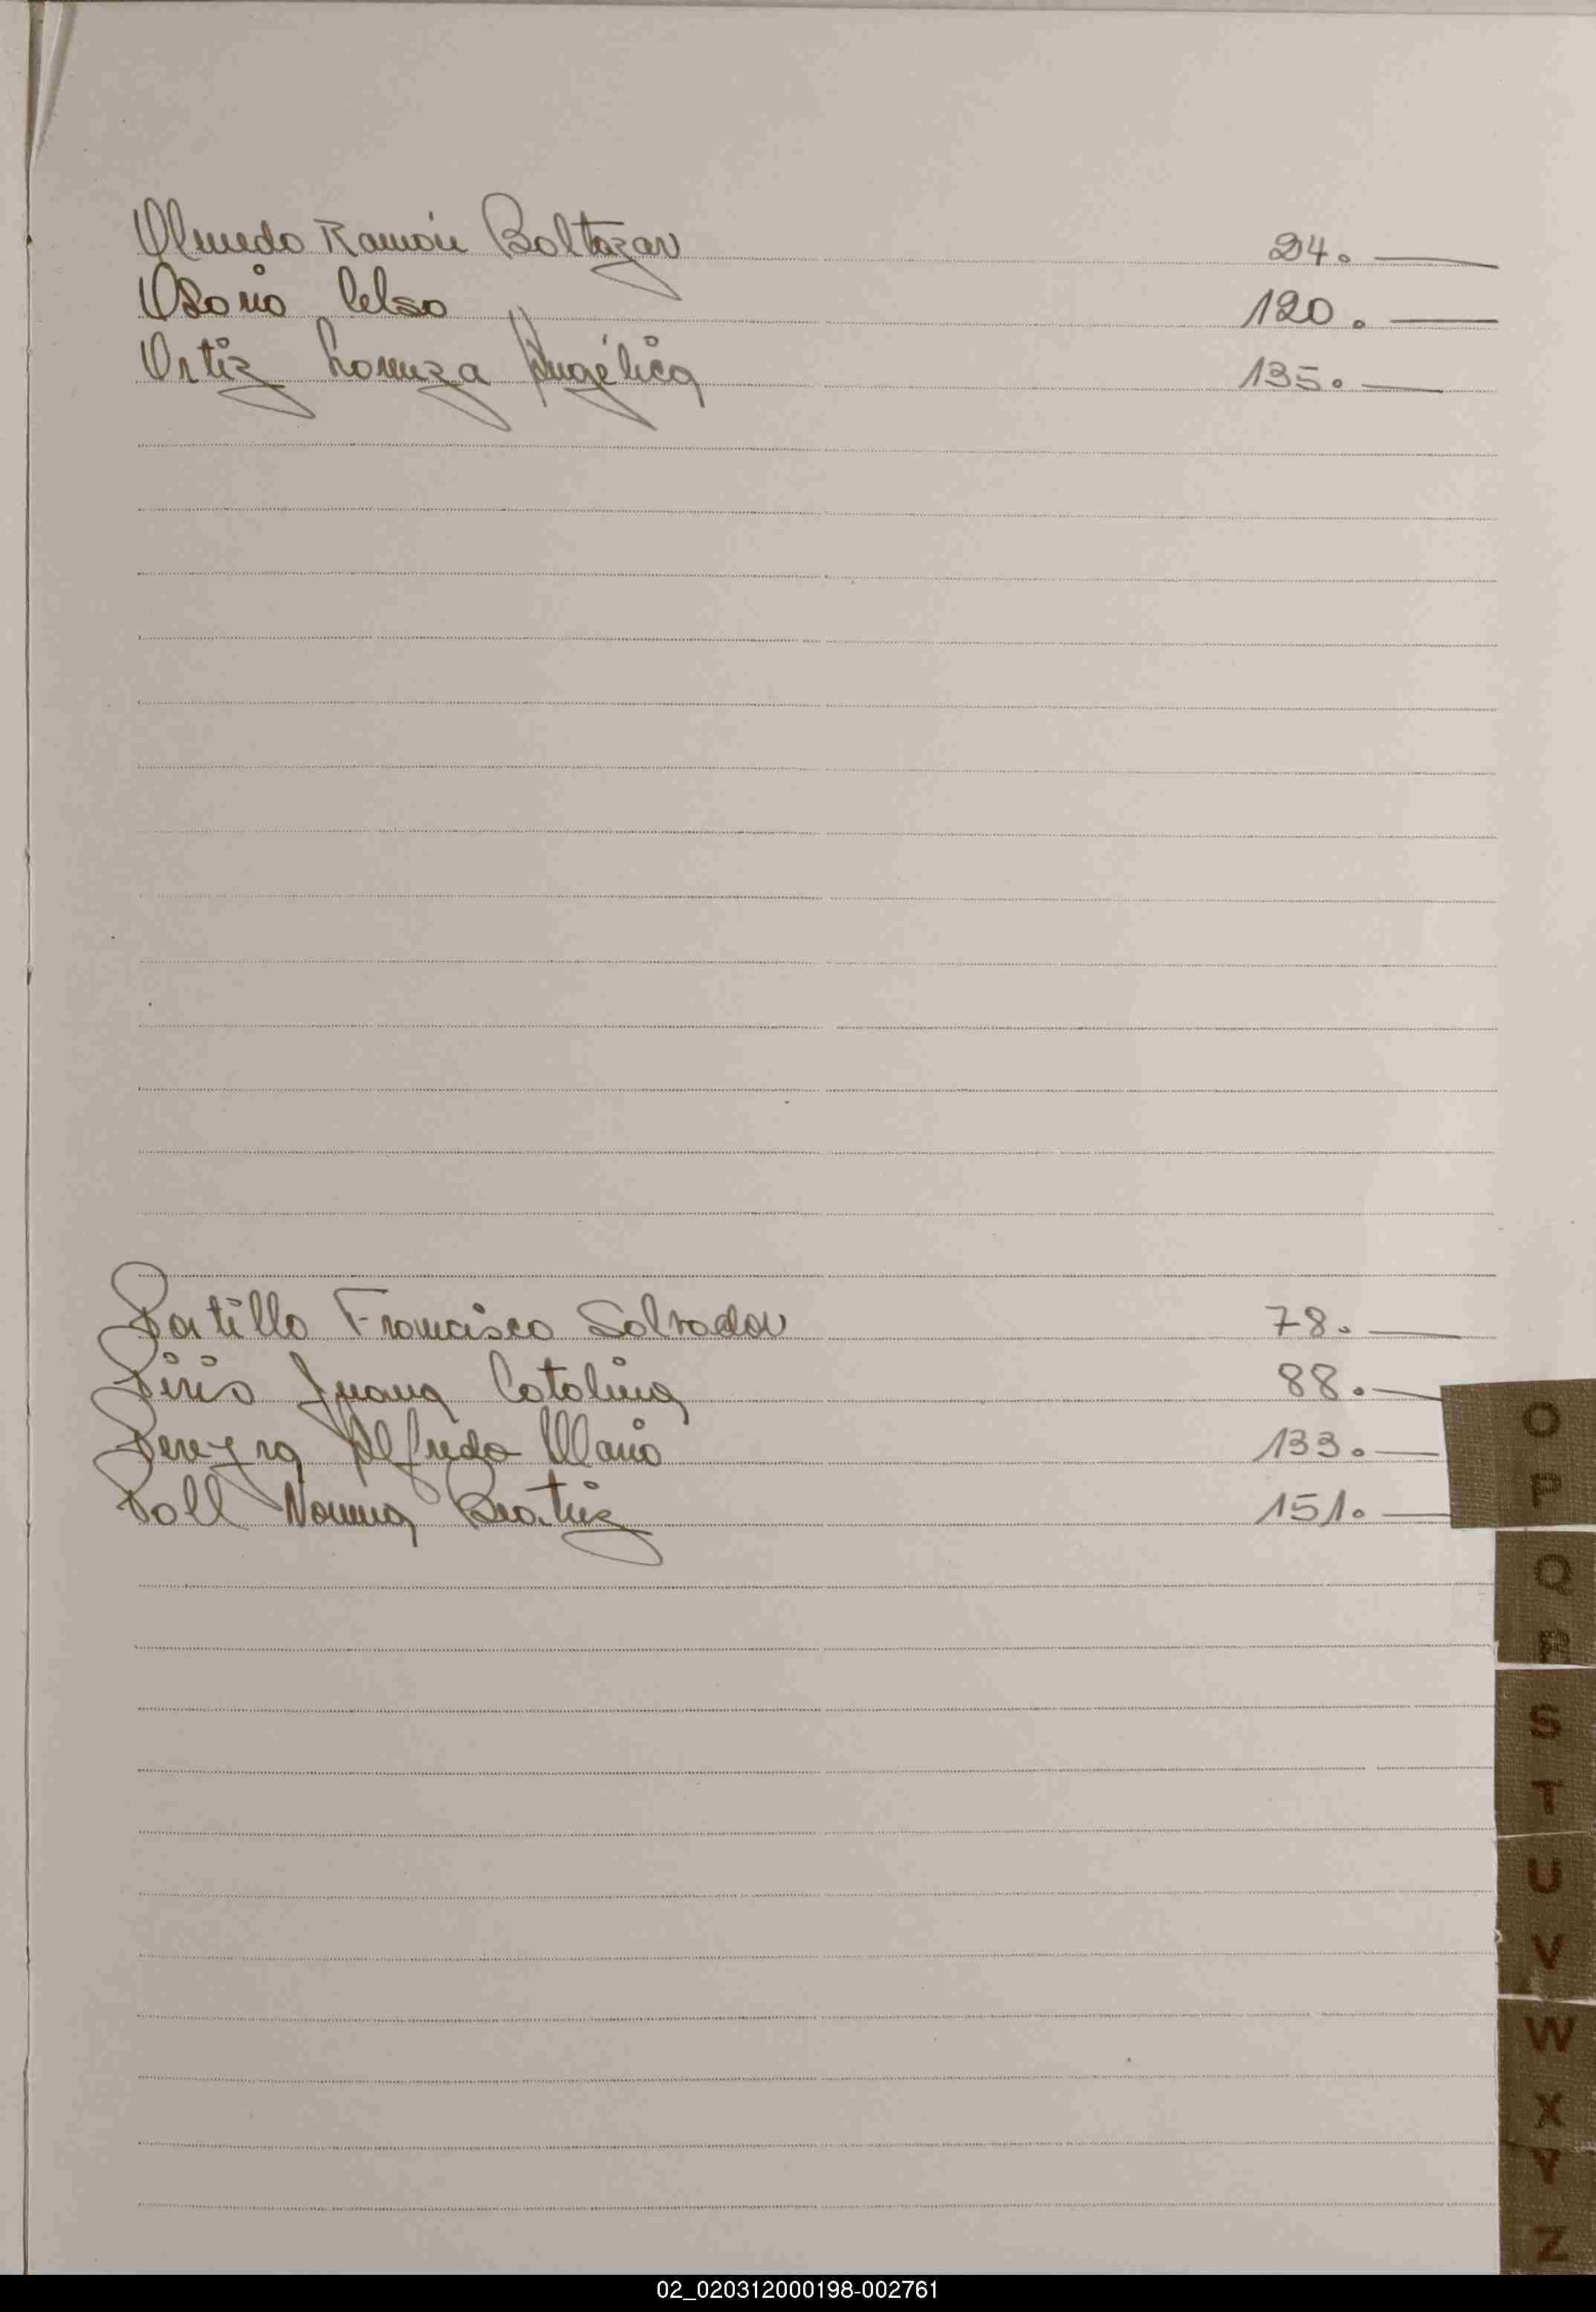 Olmedo Ramón Baltazar 24.
Osorio Celso 120.
Ortiz Lorenza Angélica 135.
Portillo Francisco Salvador 78.
Piris Juana Catalina 88.
Pereyra Alfredo Mario 133.
Poll Norma Beatriz 151.
O
P
Q
R
S
T
U
V
W
X
Y
Z
02_020312000198-002761